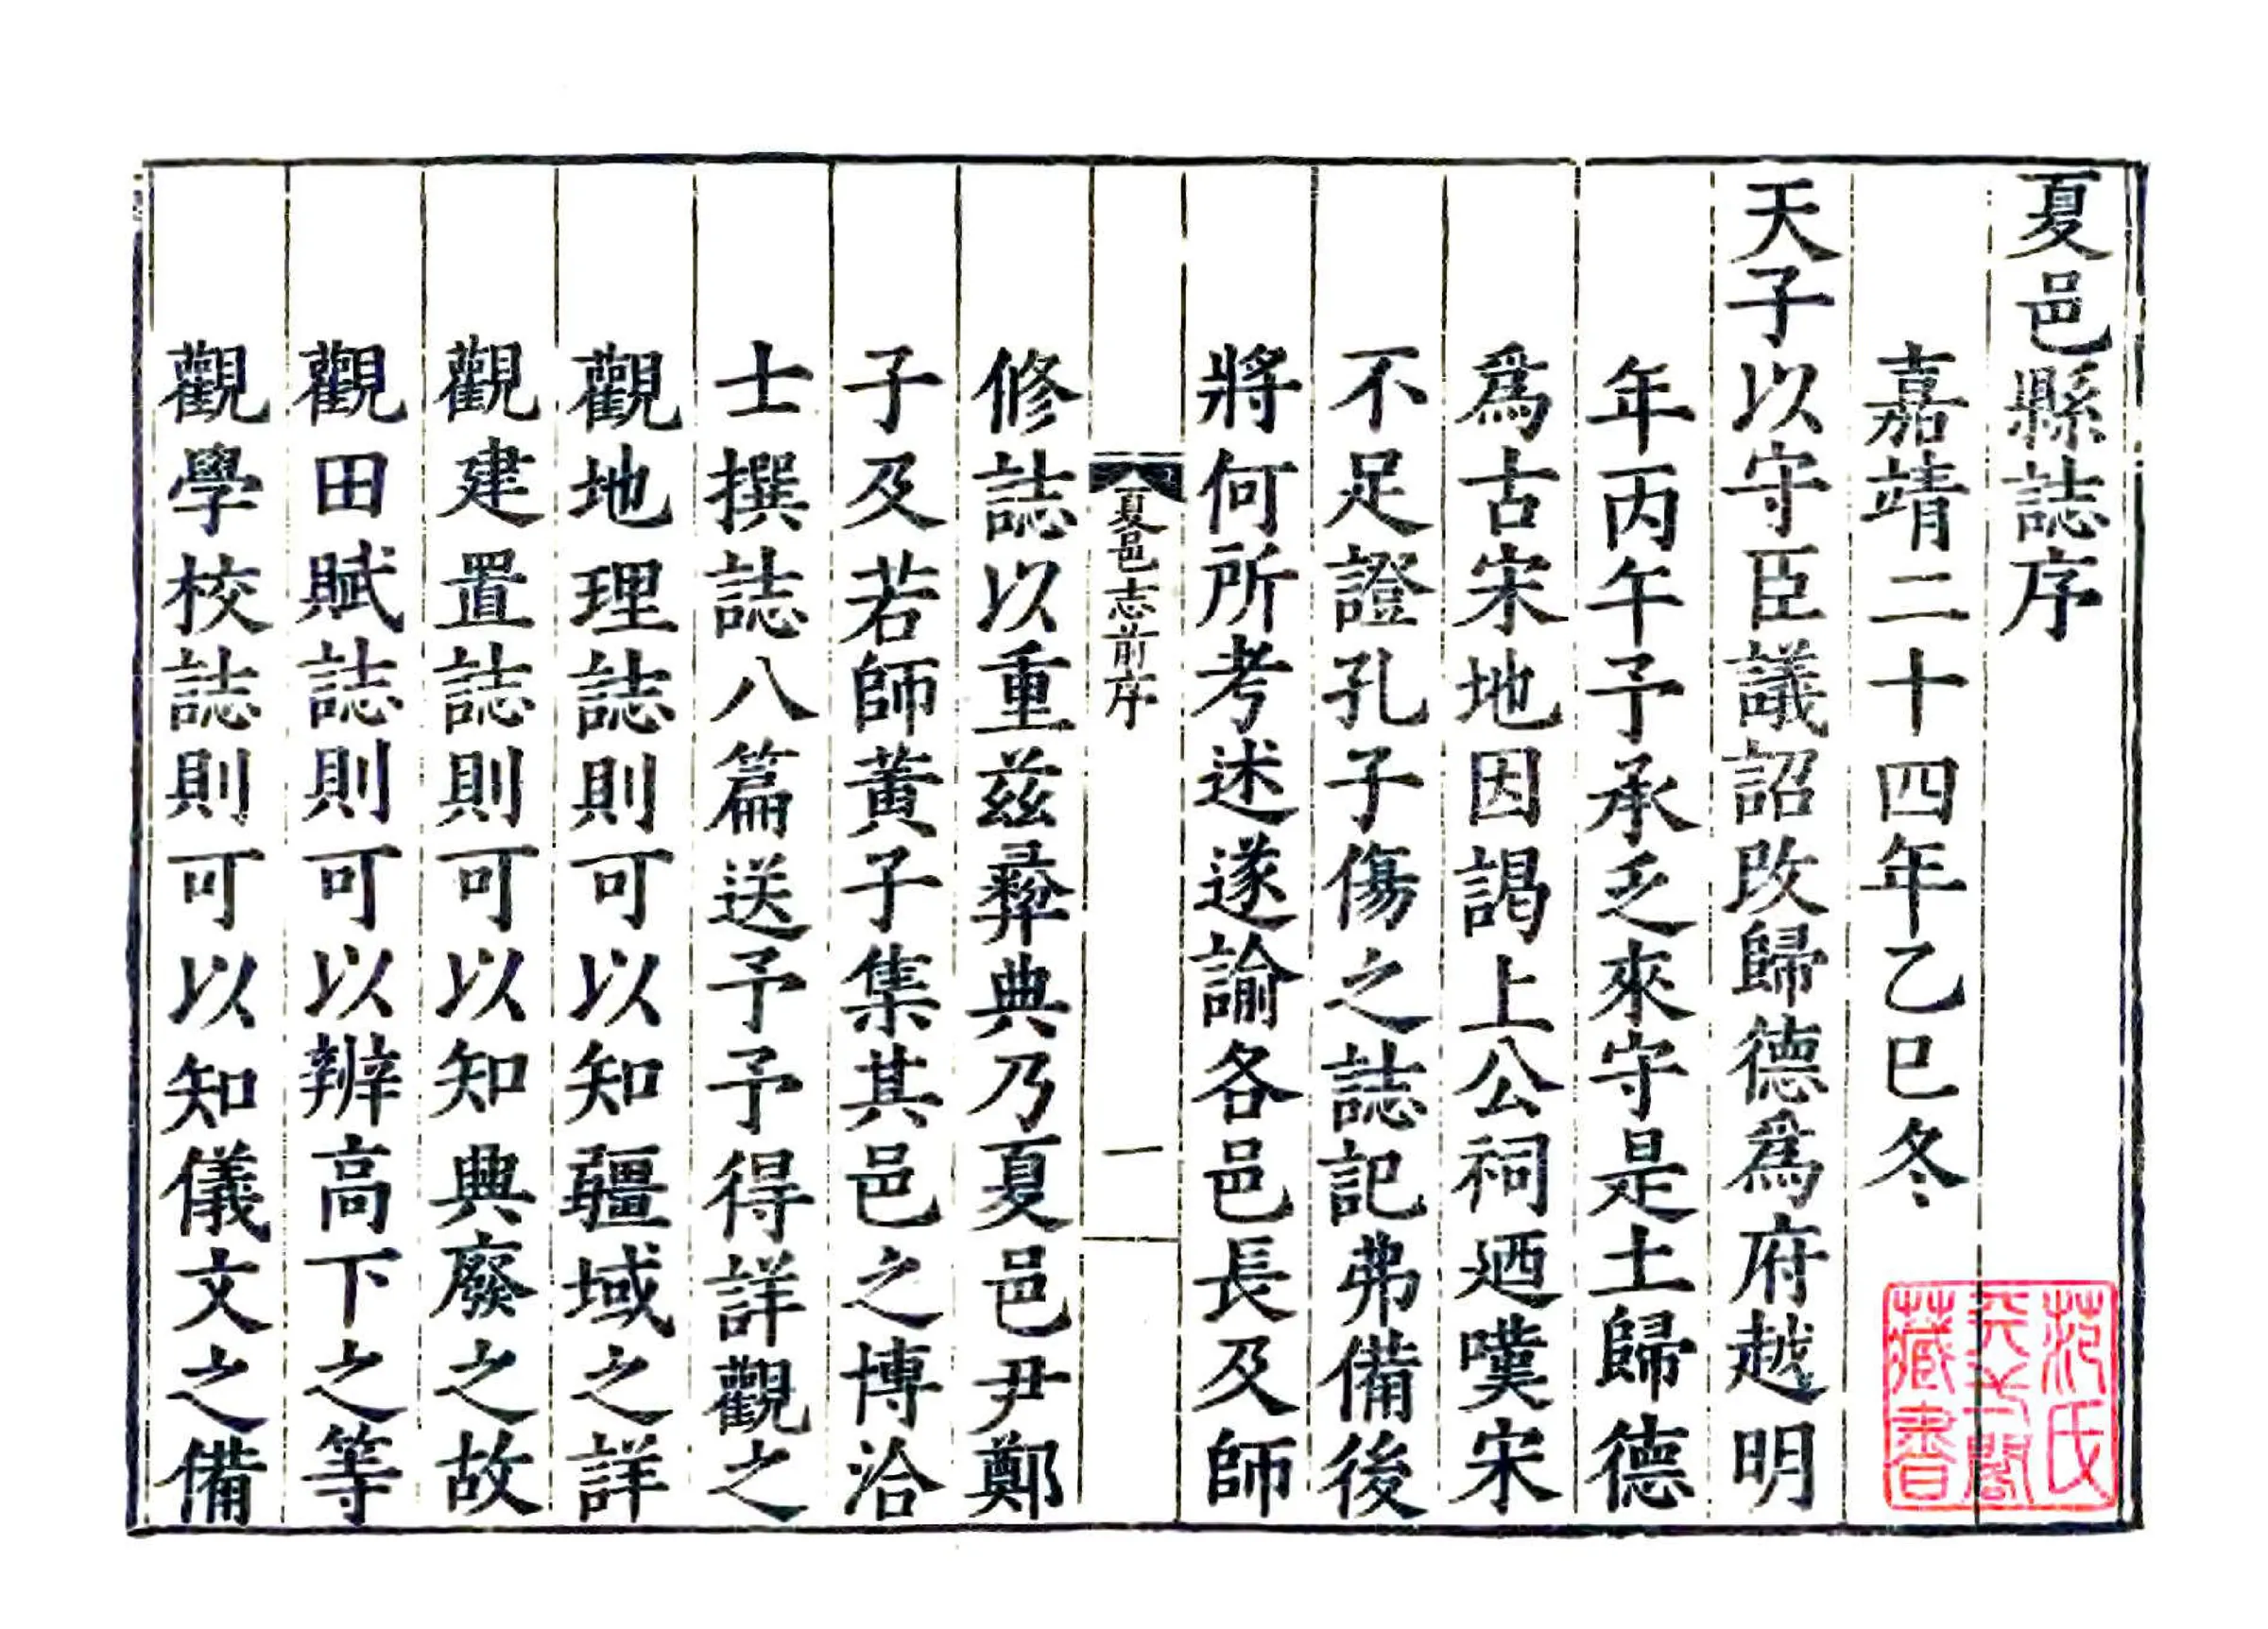 夏邑縣誌序
嘉靖二十四年乙巳冬
天子以守臣議詔改歸德爲府越明
年丙午予承乏來守是土歸德
爲古宋地因謁上公祠廼嘆宋
不足證孔子傷之誌記弗備後
將何所考述遂諭各邑長及師
夏邑志前序
一
修誌以重茲彞典乃夏邑尹鄭
子及若師黃子集其邑之博洽
士撰誌八篇送予予得詳觀之
觀地理誌則可以知疆域之詳
觀建置誌則可以知典廢之故
觀田賦誌則可以辨高下之等
觀學校誌則可以知儀文之備
范氏
天一閣
藏書